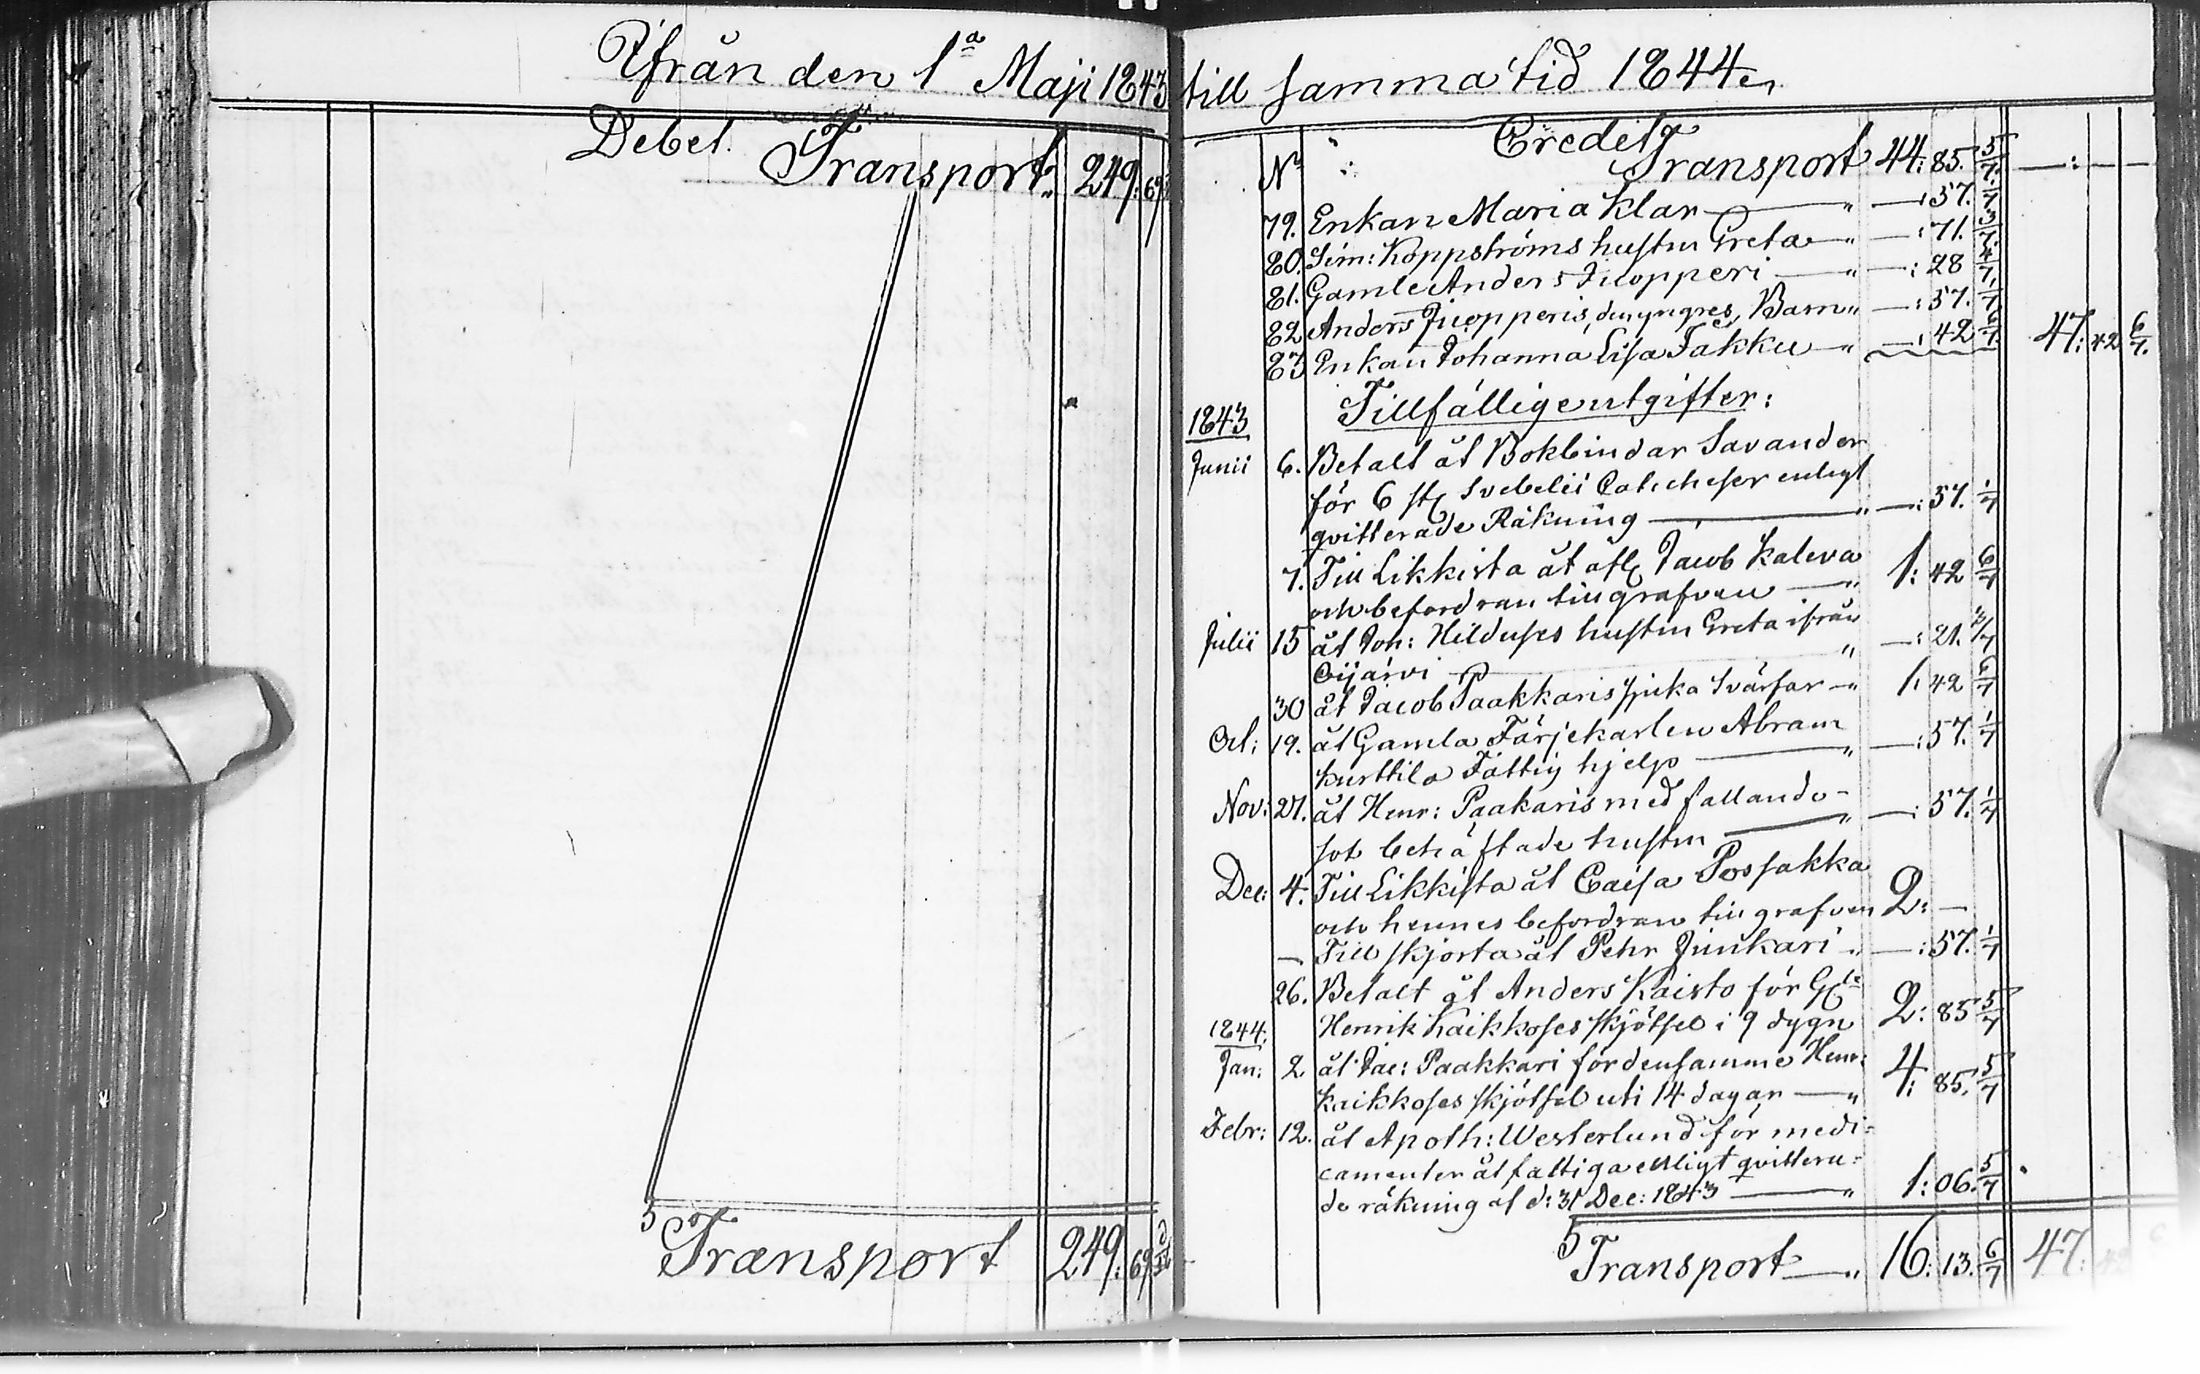 Ifrån den 1a Maji 1843 till samma tid 1844
Debet.
Transport 249: 69
5 Transport 249: 69
Credet
No Transport 44: 85. 5/7 —: —
79. Enkan Maria Klar " —: 57. 1/7
80. Sim: Koppströms hustru Greta " —: 71. 3/7
81. Gamle Anders " —: 28 4/7
82 Anders den yngres Barn " —: 57. 1/7
83 Enkan Johanna Lisa Takku " —: 42 6/7 47: 42 6/7
Tillfällige utgifter:
1843
Junii 6. Betalt åt Bokbindar Savander
för 6 st Svebelii Catecheser enligt
qvitterade Räkning " —: 57. 1/7
7. Till Likkista åt afl Jacob Kaleva
och befordran till grafven " 1: 42 6/7
Julii 15 åt Joh: Hilduses hustru Greta ifrån
Oijärvi " —: 21.
30 åt Jacob Paakkaris sjuka Svärfar " 1. 42 6/7
Oct: 19. åt Gamla Färjekarlen Abram
Kurttila Fattig hjelp " —: 57. 1/7
Nov: 27. åt Henr: Paakaris med fallande-
sot behäftade hustru " —: 57. 1/7
Dec: 4. Till Likkista åt Caisa Possakka
och hennes befordran till grafven 2: —
— Till skjorta åt Pehr Junkari " —: 57. 1/7
26. Betalt åt Anders Kaisto för
Henrik Kaikkoses skjötsel i 9 dygn 2: 85 5/7
1844.
Jan: 2 åt Jac: Paakkari för densamme Henr:
Kaikkoses skjötsel uti 14 dagar " 4: 85. 5/7
Febr: 12. åt Apoth: Westerlund för medi-
camenter åt fattiga enligt qvittera-
de räkning af d: 31 Dec: 1843 " 1: 06. 5/7
5 Transport " 16: 13. 6/7 47: 42